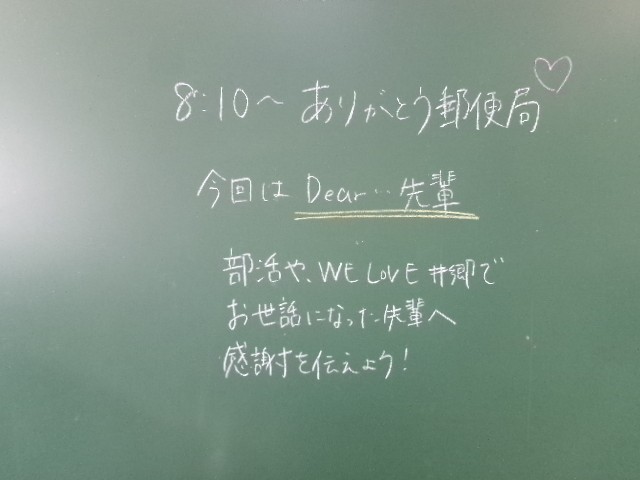 8:10～ ありがとう郵便局♡
今回は Dear…先輩
部活や、WE LOVE 井郷で
お世話になった先輩へ
感謝を伝えよう!